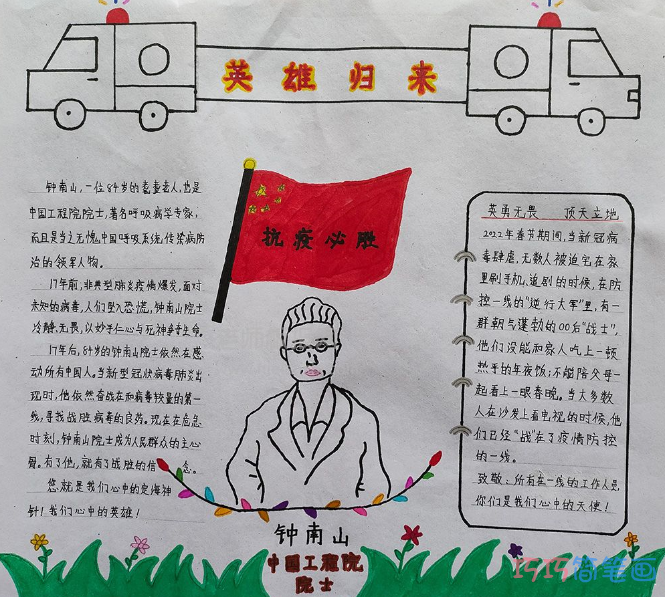 英雄归来
钟南山,一位84岁的耄耋老人,也是
中国工程院院士,著名呼吸病学专家,
而且是当之无愧中国呼吸系统传染病防
治的领军人物。
17年前,非典型肺炎疫情爆发,面对
未知的病毒,人们坠入恐慌,钟南山院士
冷静、无畏,以妙手仁心与死神争夺生命。
17年后,84岁的钟南山院士依然在感
动所有中国人。当新型冠状病毒肺炎出
现时,他依然奋战在和病毒较量的第一
线,寻找战胜病毒的良药。现在在危急
时刻,钟南山院士成为人民群众的主心
骨。有了他,就有了战胜的信念。
您就是我们心中的定海神
针!我们心中的英雄!
抗疫必胜
钟南山
中国工程院
院士
英勇无畏 顶天立地
2022年春节期间,当新冠病
毒肆虐,无数人被迫宅在家
里刷手机、追剧的时候,在防
控一线的“逆行大军”里,有一
群朝气蓬勃的00后“战士”,
他们没能和家人吃上一顿
热乎的年夜饭;不能陪父母一
起看上一眼春晚。当大多数
人在沙发上看电视的时候,他
们已经“战”在了疫情防控
的一线。
致敬:所有在一线的工作人员,
你们是我们心中的天使!
1515简笔画